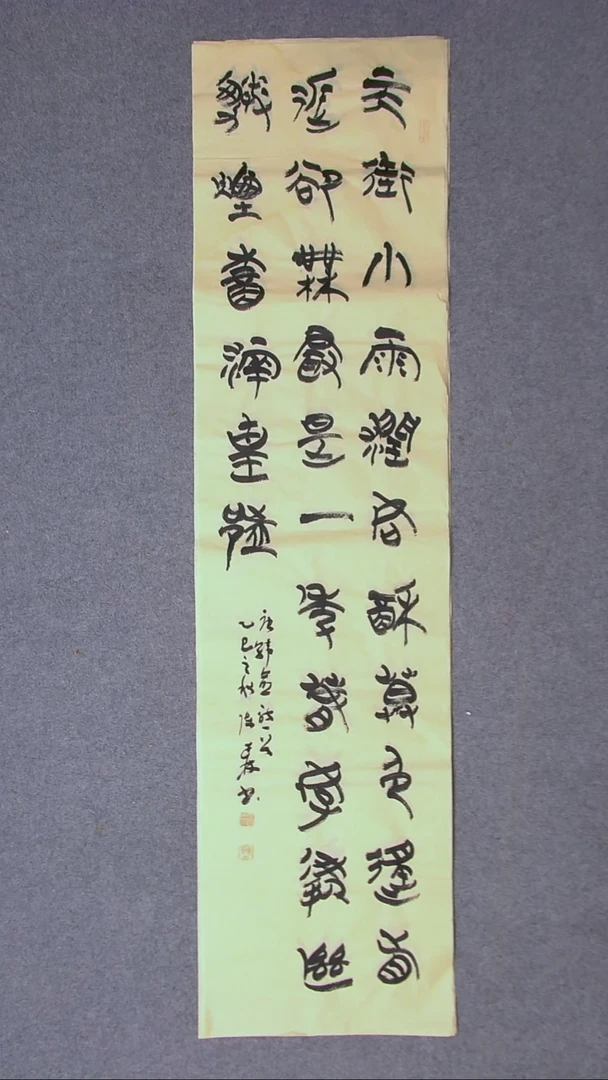 天街小雨潤如酥草色遥看
近卻無最是一年春好處絕
勝煙柳滿皇都
唐韓愈詩一首
乙巳之秋 书